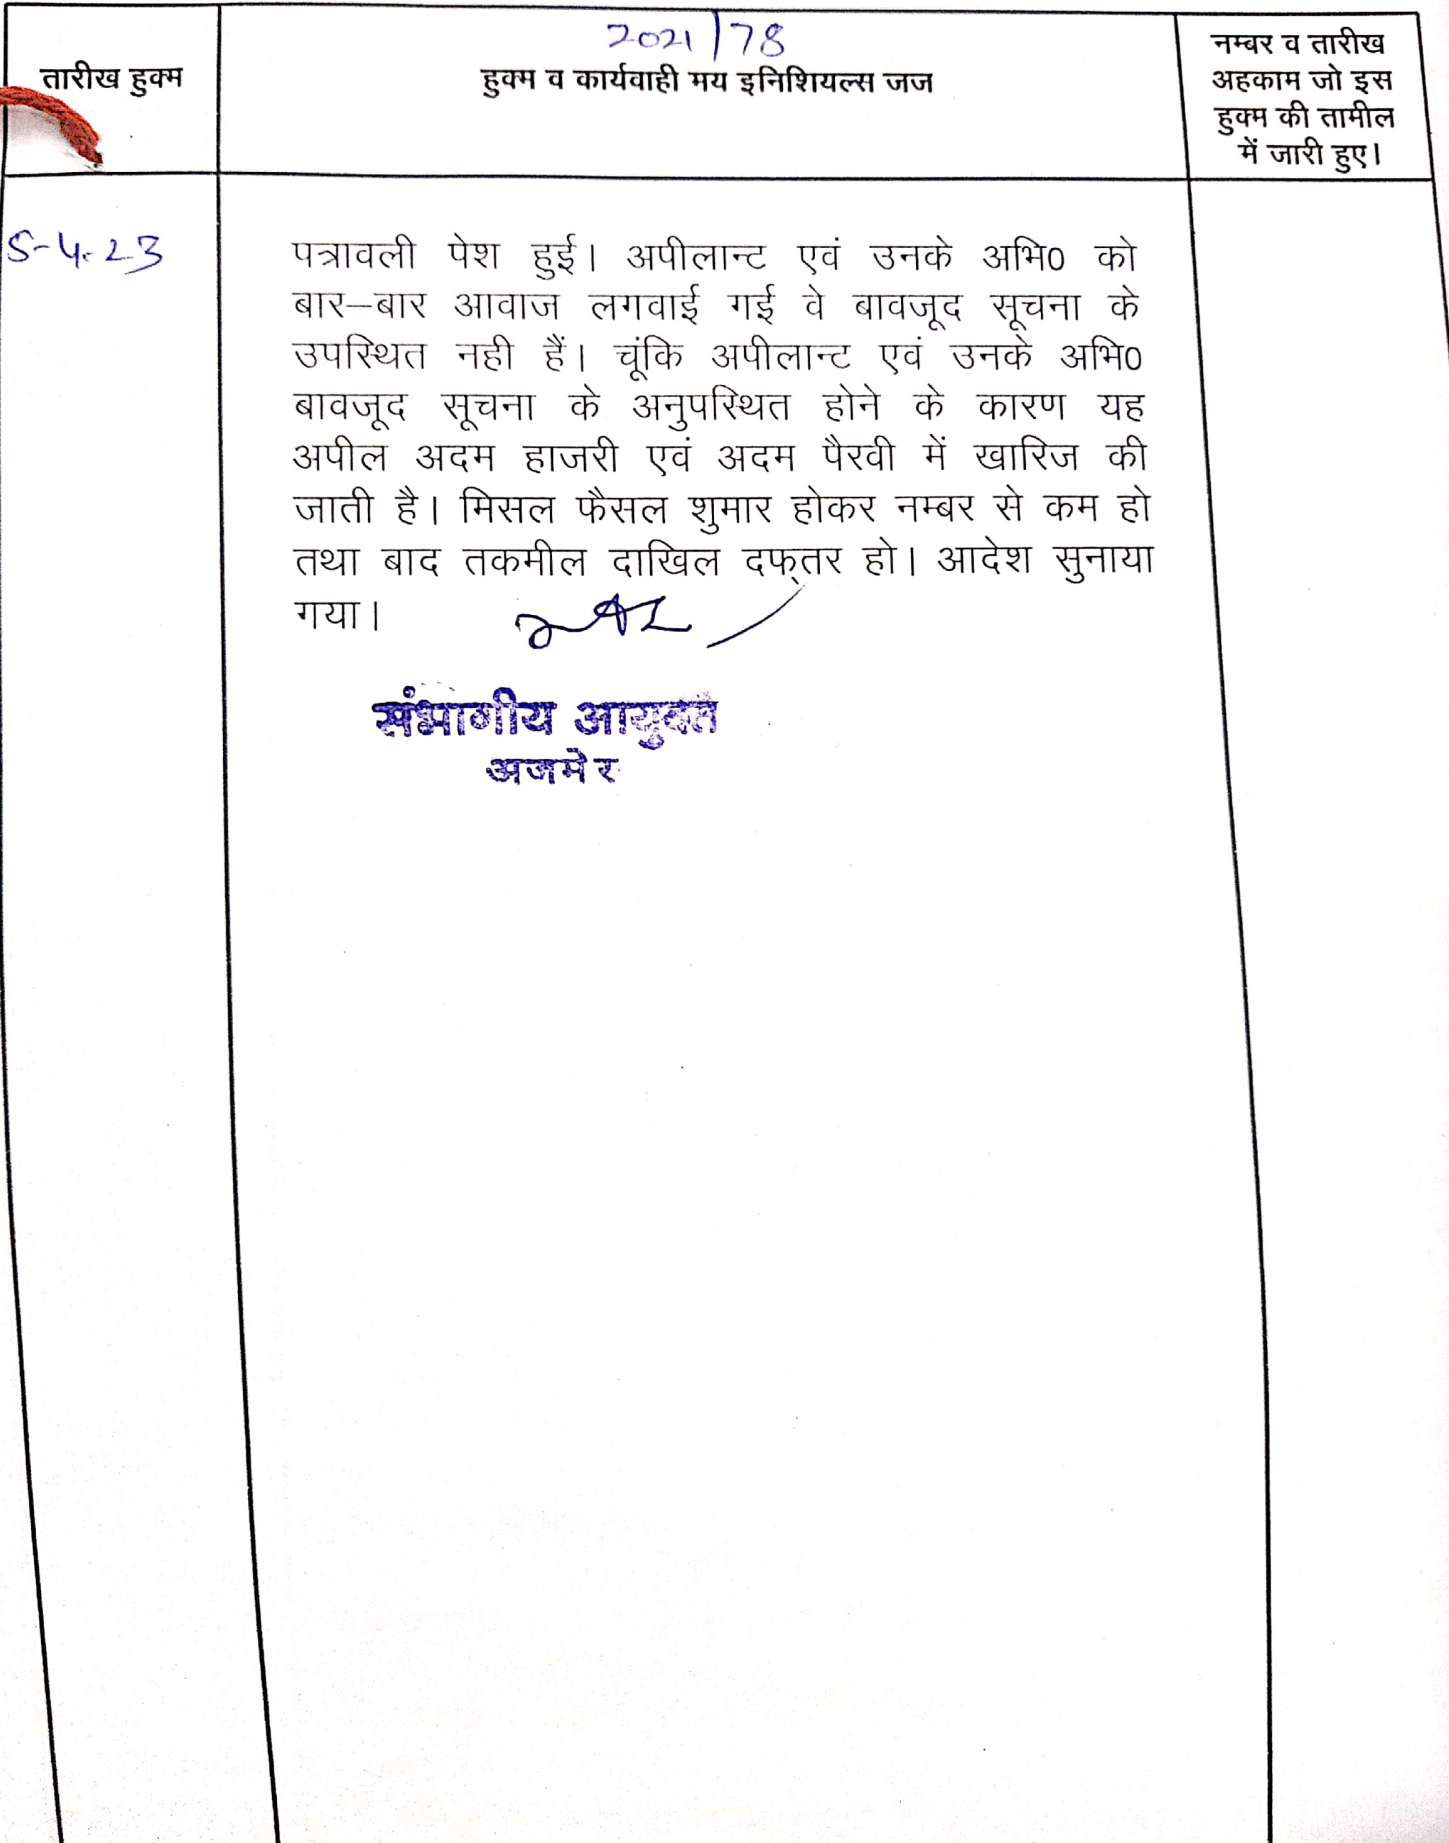 2021/78
तारीख हुक्म
हुक्म व कार्यवाही मय इनिशियल्स जज
नम्बर व तारीख
अहकाम जो इस
हुक्म की तामील
में जारी हुए।
5-4-23
पत्रावली पेश हुई। अपीलान्ट एवं उनके अभि0 को
बार–बार आवाज लगवाई गई वे बावजूद सूचना के
उपस्थित नही हैं। चूंकि अपीलान्ट एवं उनके अभि0
बावजूद सूचना के अनुपस्थित होने के कारण यह
अपील अदम हाजरी एवं अदम पैरवी में खारिज की
जाती है। मिसल फैसल शुमार होकर नम्बर से कम हो
तथा बाद तकमील दाखिल दफ्तर हो। आदेश सुनाया
गया।
संभागीय आयुक्त
अजमेर